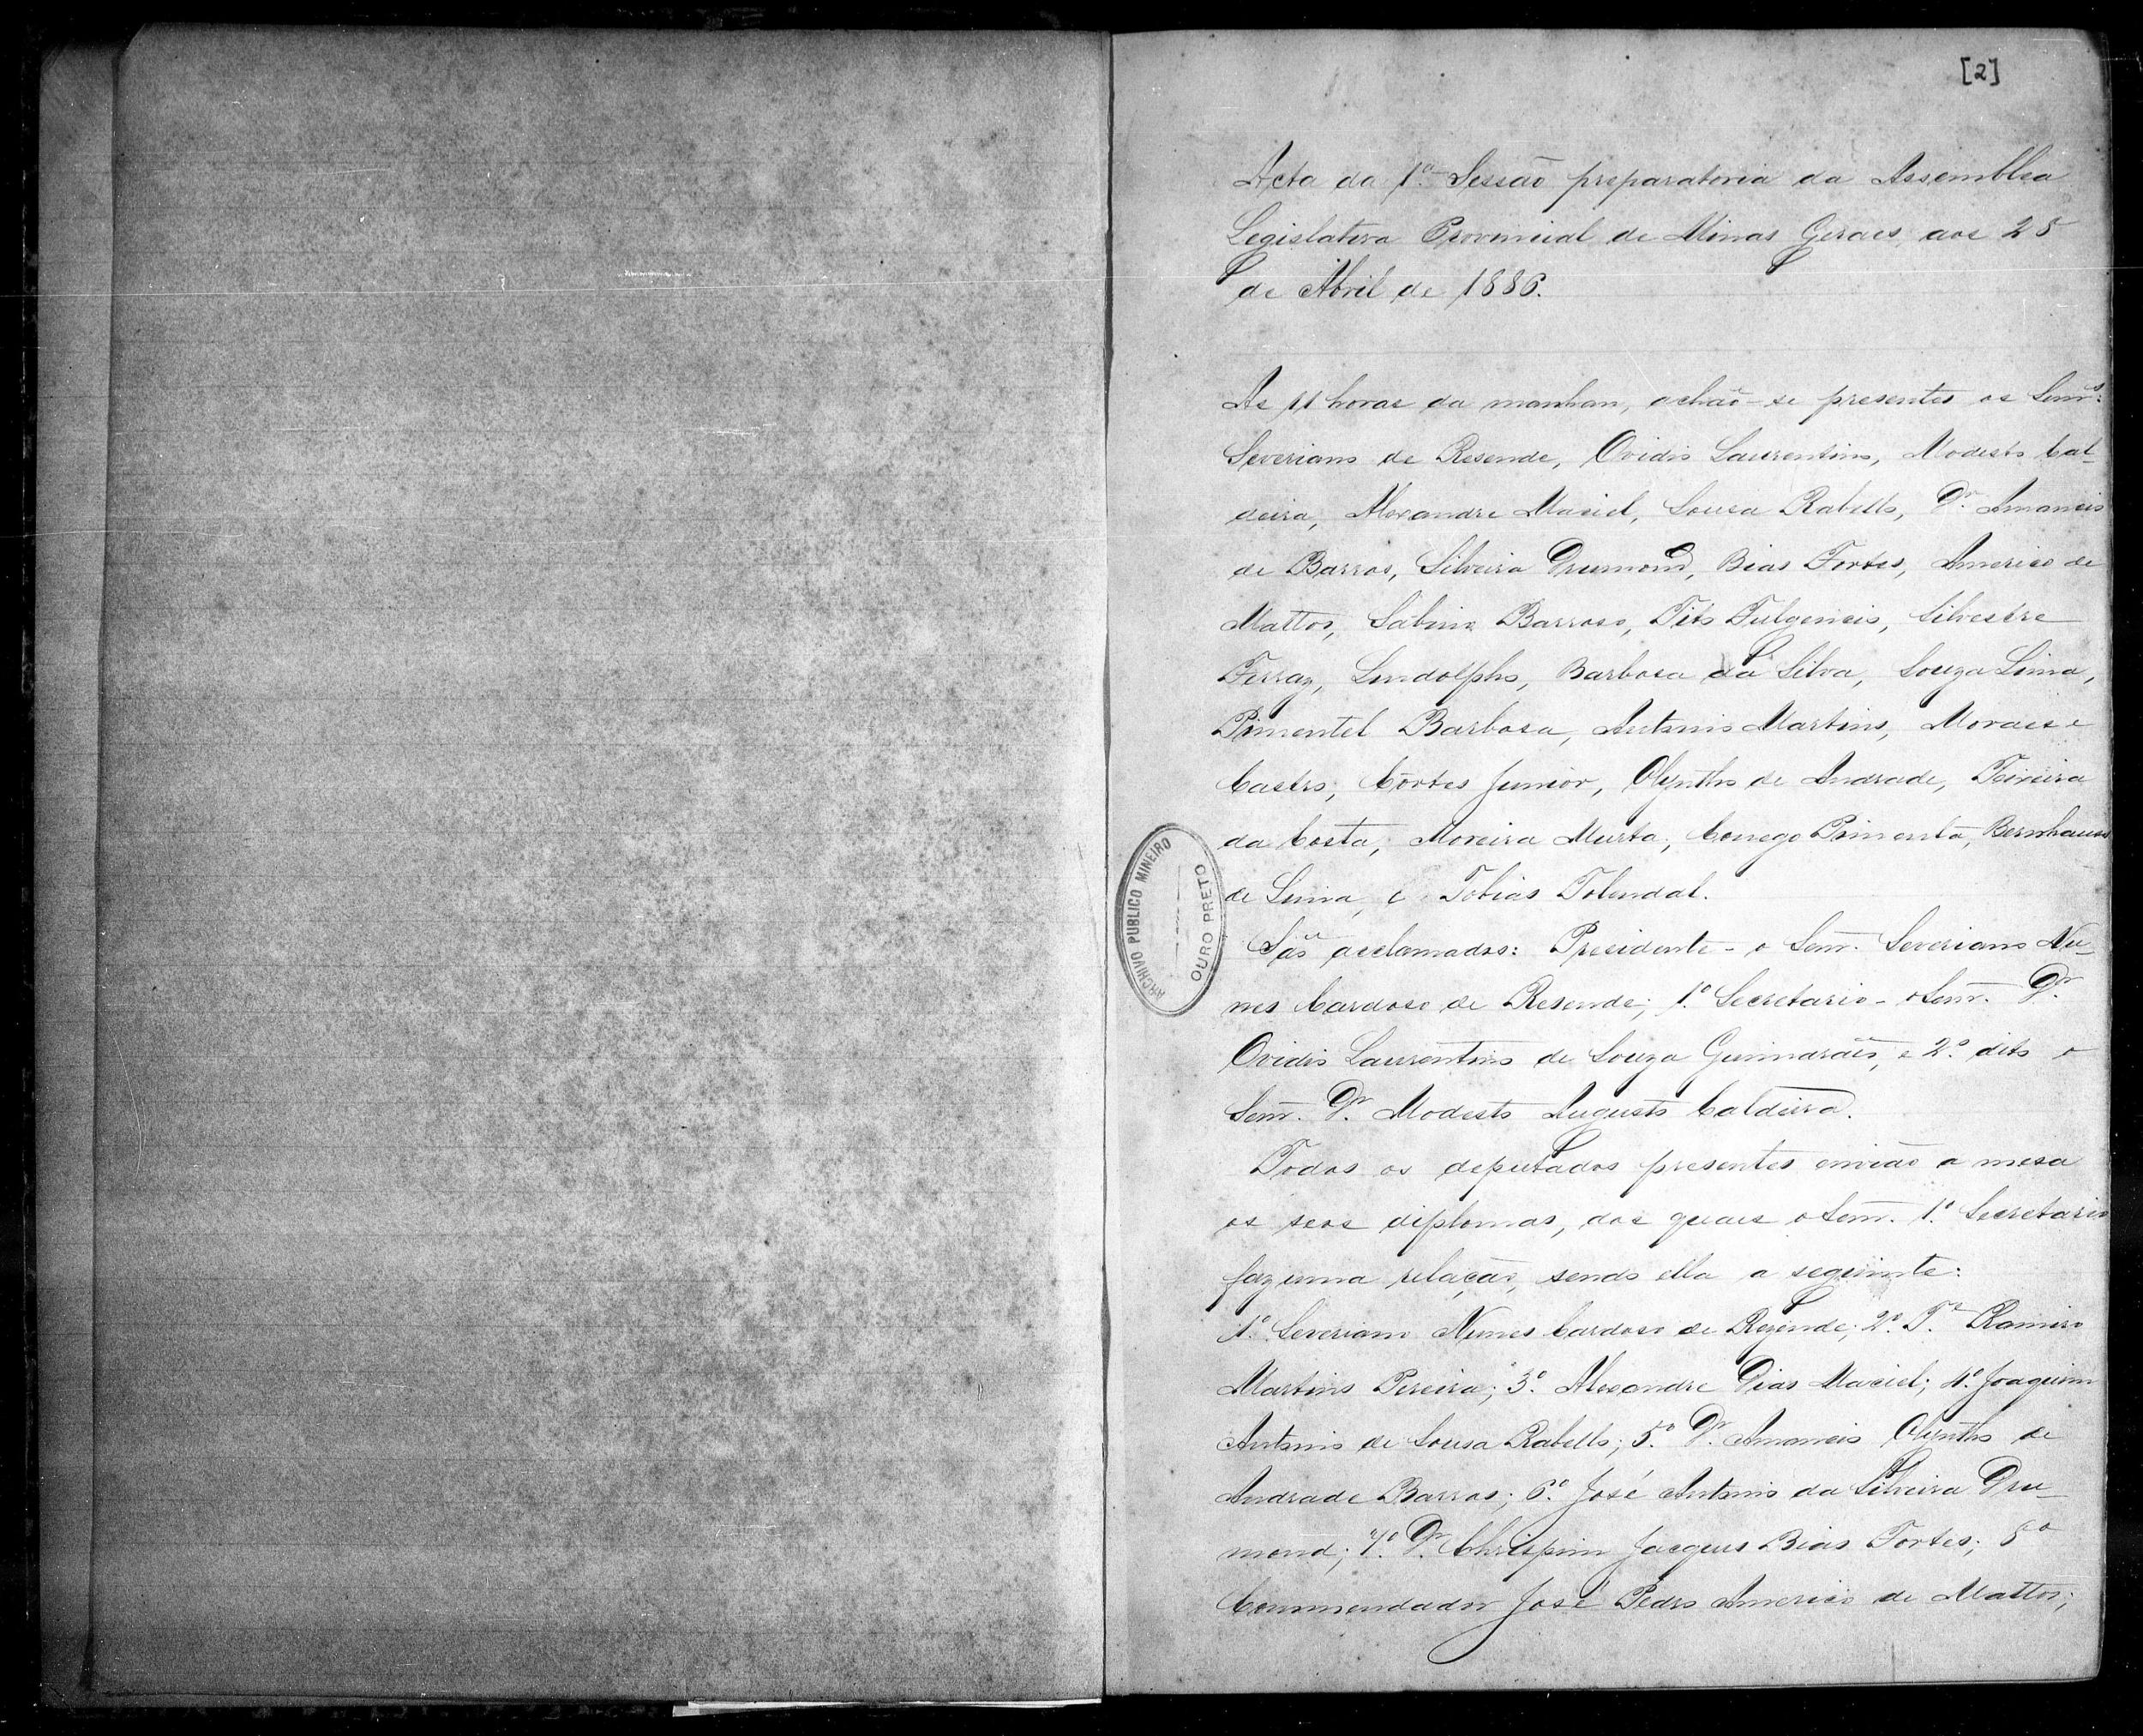 [2]
Acta da 1ª Sessão preparatoria da Assemblea
Legislativa Provincial de Minas Geraes aos 25
de Abril de 1886.
As 11 horas da manhan, achão-se presentes os Senrs.
Severiano de Resende, Ovidio Laurentino, Modesto Cal-
deira, Alexandre Maciel, Sousa Rabello, Dr. Amancio
de Barros, Silveira Drumond, Bias Fortes, Americo de
Mattos, Sabino Barroso, Tito Fulgencio, Silvestre
Ferraz, Lindolpho, Barbosa da Silva, Souza Lima,
Pimentel Barbosa, Antonio Martins, Moraes e
Castro, Côrtes Junior, Olyntho de Andrade, Teixeira
da Costa, Moreira Murta, Conego Pimenta, Bernhauss
de Lima, e Tobias Tolendal.
São acclamados: Presidente - o Senr. Severiano Nu-
nes Cardoso de Resende; 1º Secretario - o Senr. Dr.
Ovidio Laurentino de Souza Guimarães, e 2º dito o
Senr. Dr. Modesto Augusto Caldeira.
Todos os deputados presentes envião a mesa
os seos diplomas, dos quaes o Senr. 1º Secretario
faz uma relação, sendo ella a seguinte:
1º Severiano Nunes Cardoso de Rezende; 2º Te. Ramiro
Martins Pereira; 3º Alexandre Dias Maciel; 4º Joaquim
Antonio de Sousa Rabello; 5º Dr. Amancio Olyntho de
Andrade Barros; 6º José Antonio da Silveira Dru-
mond; 7º Dr. Chrispim Jacques Bias Fortes; 8º
Commendador José Pedro Americo de Mattos;
ARCHIVO PUBLICO MINEIRO
OURO PRETO